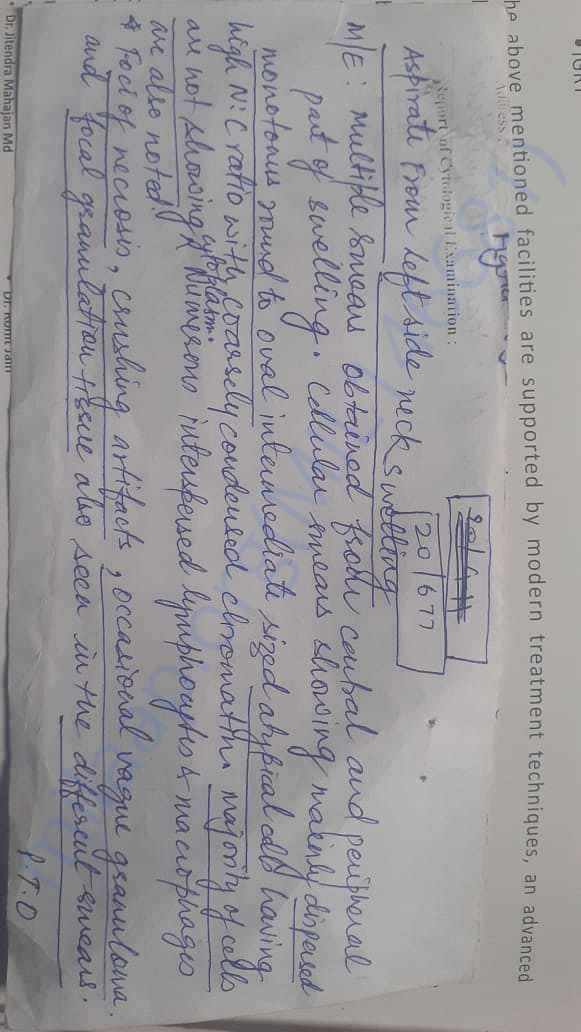 he above mentioned facilities are supported by modern treatment techniques, an advanced
Report of Cytological Examination :
20/677
Aspirate From left side neck swelling
M/E : Multiple smears obtained from central and peripheral
part of swelling. Cellular smears showing mainly dispersed
monotonus round to oval intermediate sized atypical cells having
high N:C ratio with coarsely condensed chromatin. majority of cells
are not showing cytoplasm. Numerous interspersed lymphocytes & macrophages
are also noted.
* Foci of necrosis, crushing artifacts, occasional vague granuloma
and focal granulation tissue also seen in the different smears.
P.T.O
• Dr. Jitendra Mahajan Md
• Dr. Rohit Jain